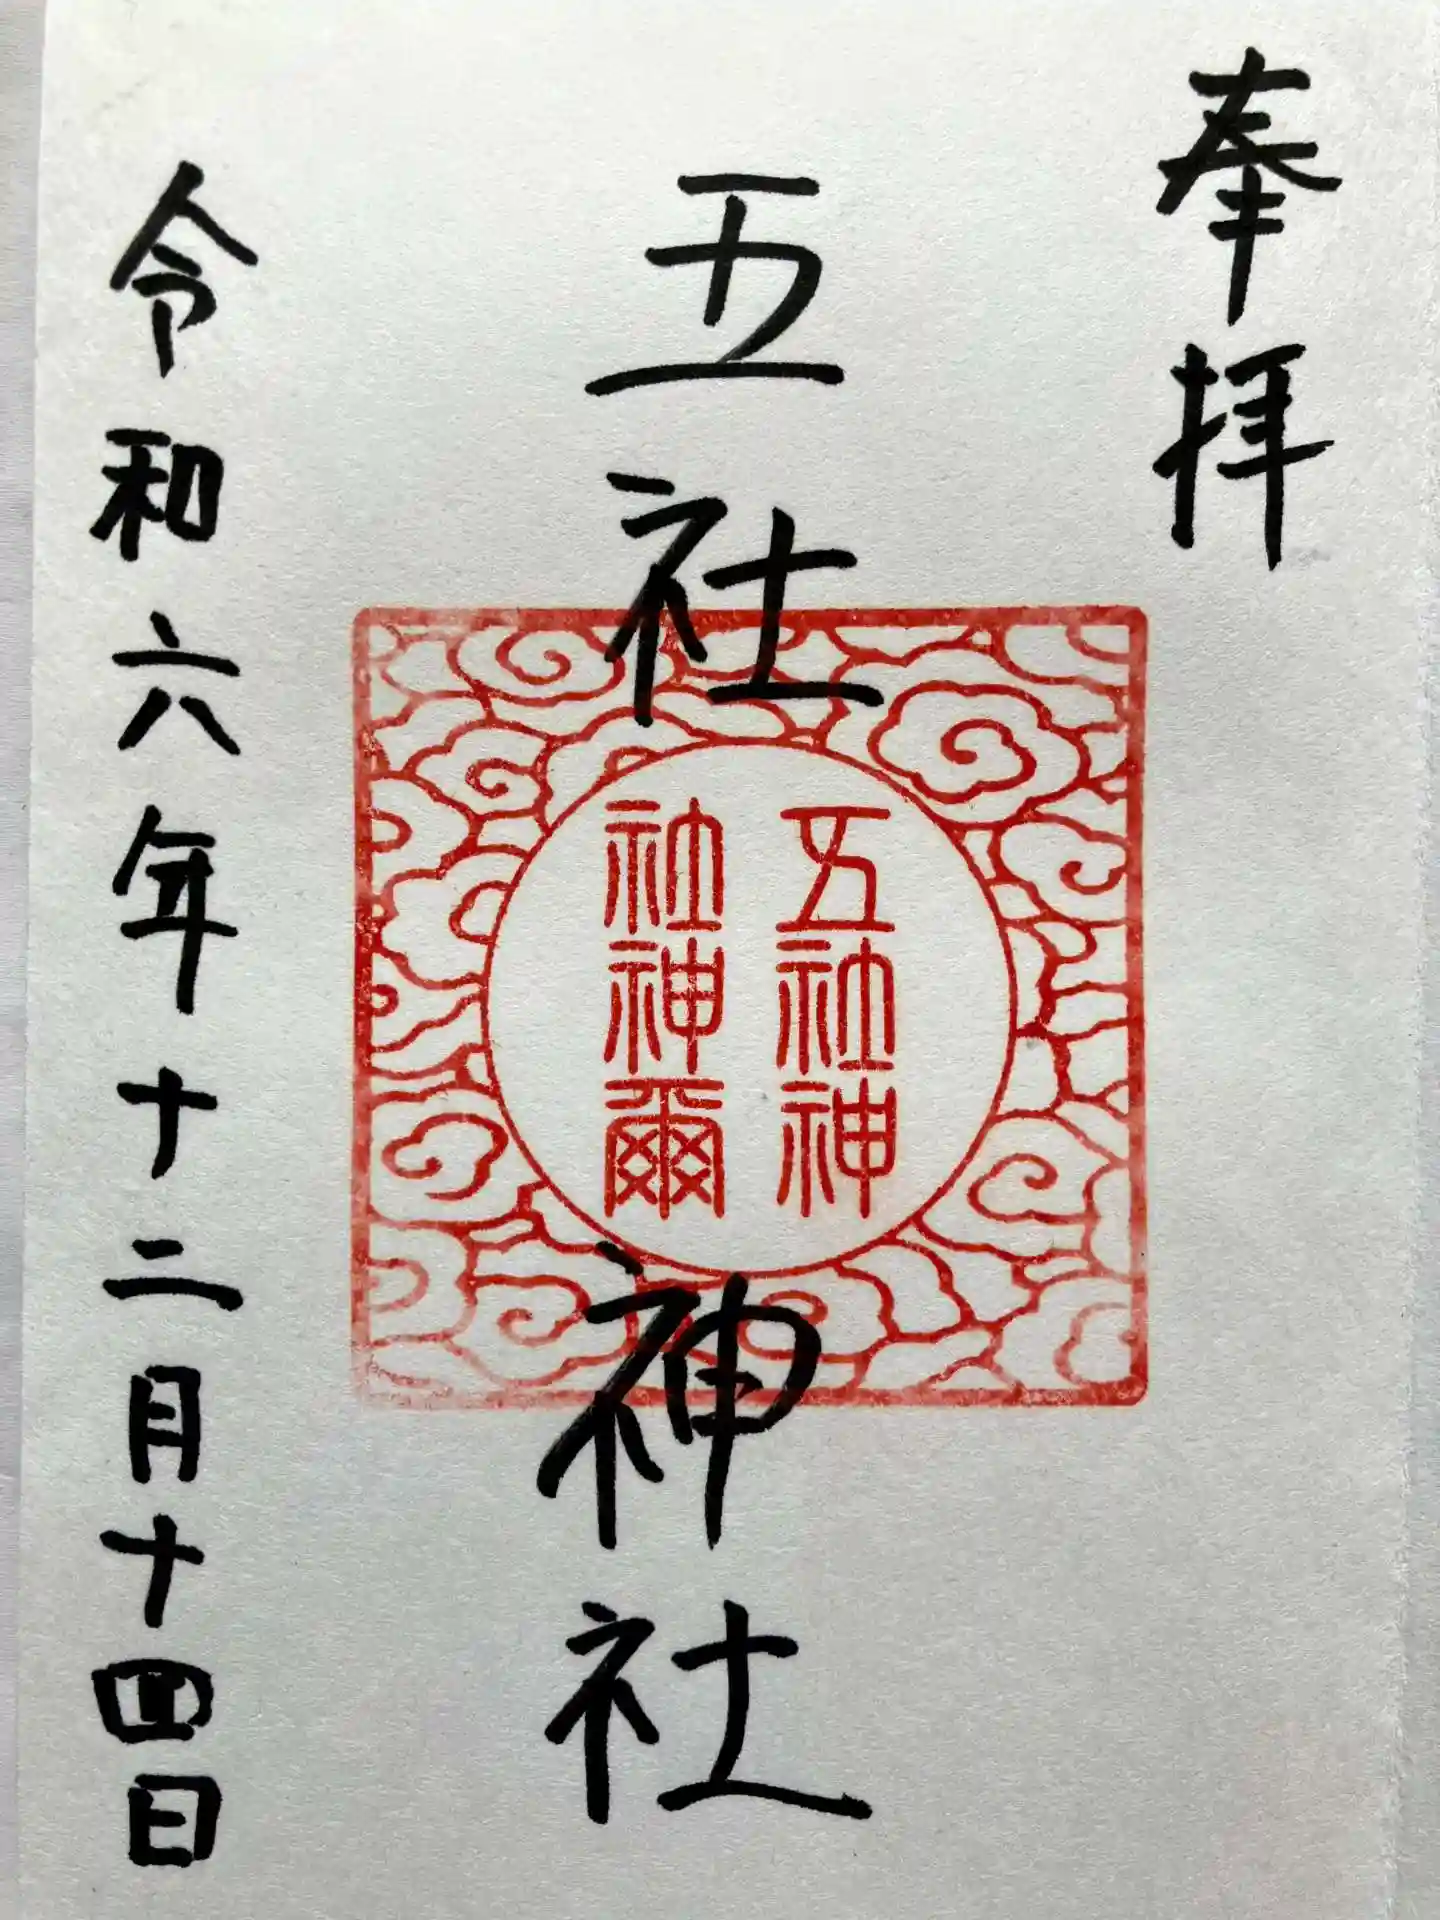 奉拝
五社神社
五社神
社神爾
令和六年十二月十四日